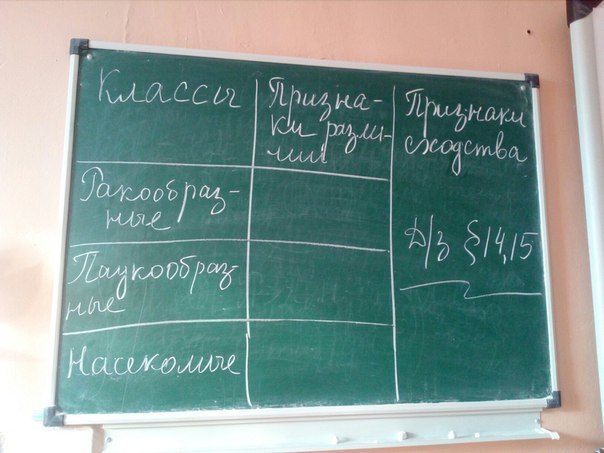 Классы
Призна-
ки разли-
чий
Признаки
сходства
Ракообраз-
ные
Паукообраз-
ные
Насекомые
Д/з §14,15